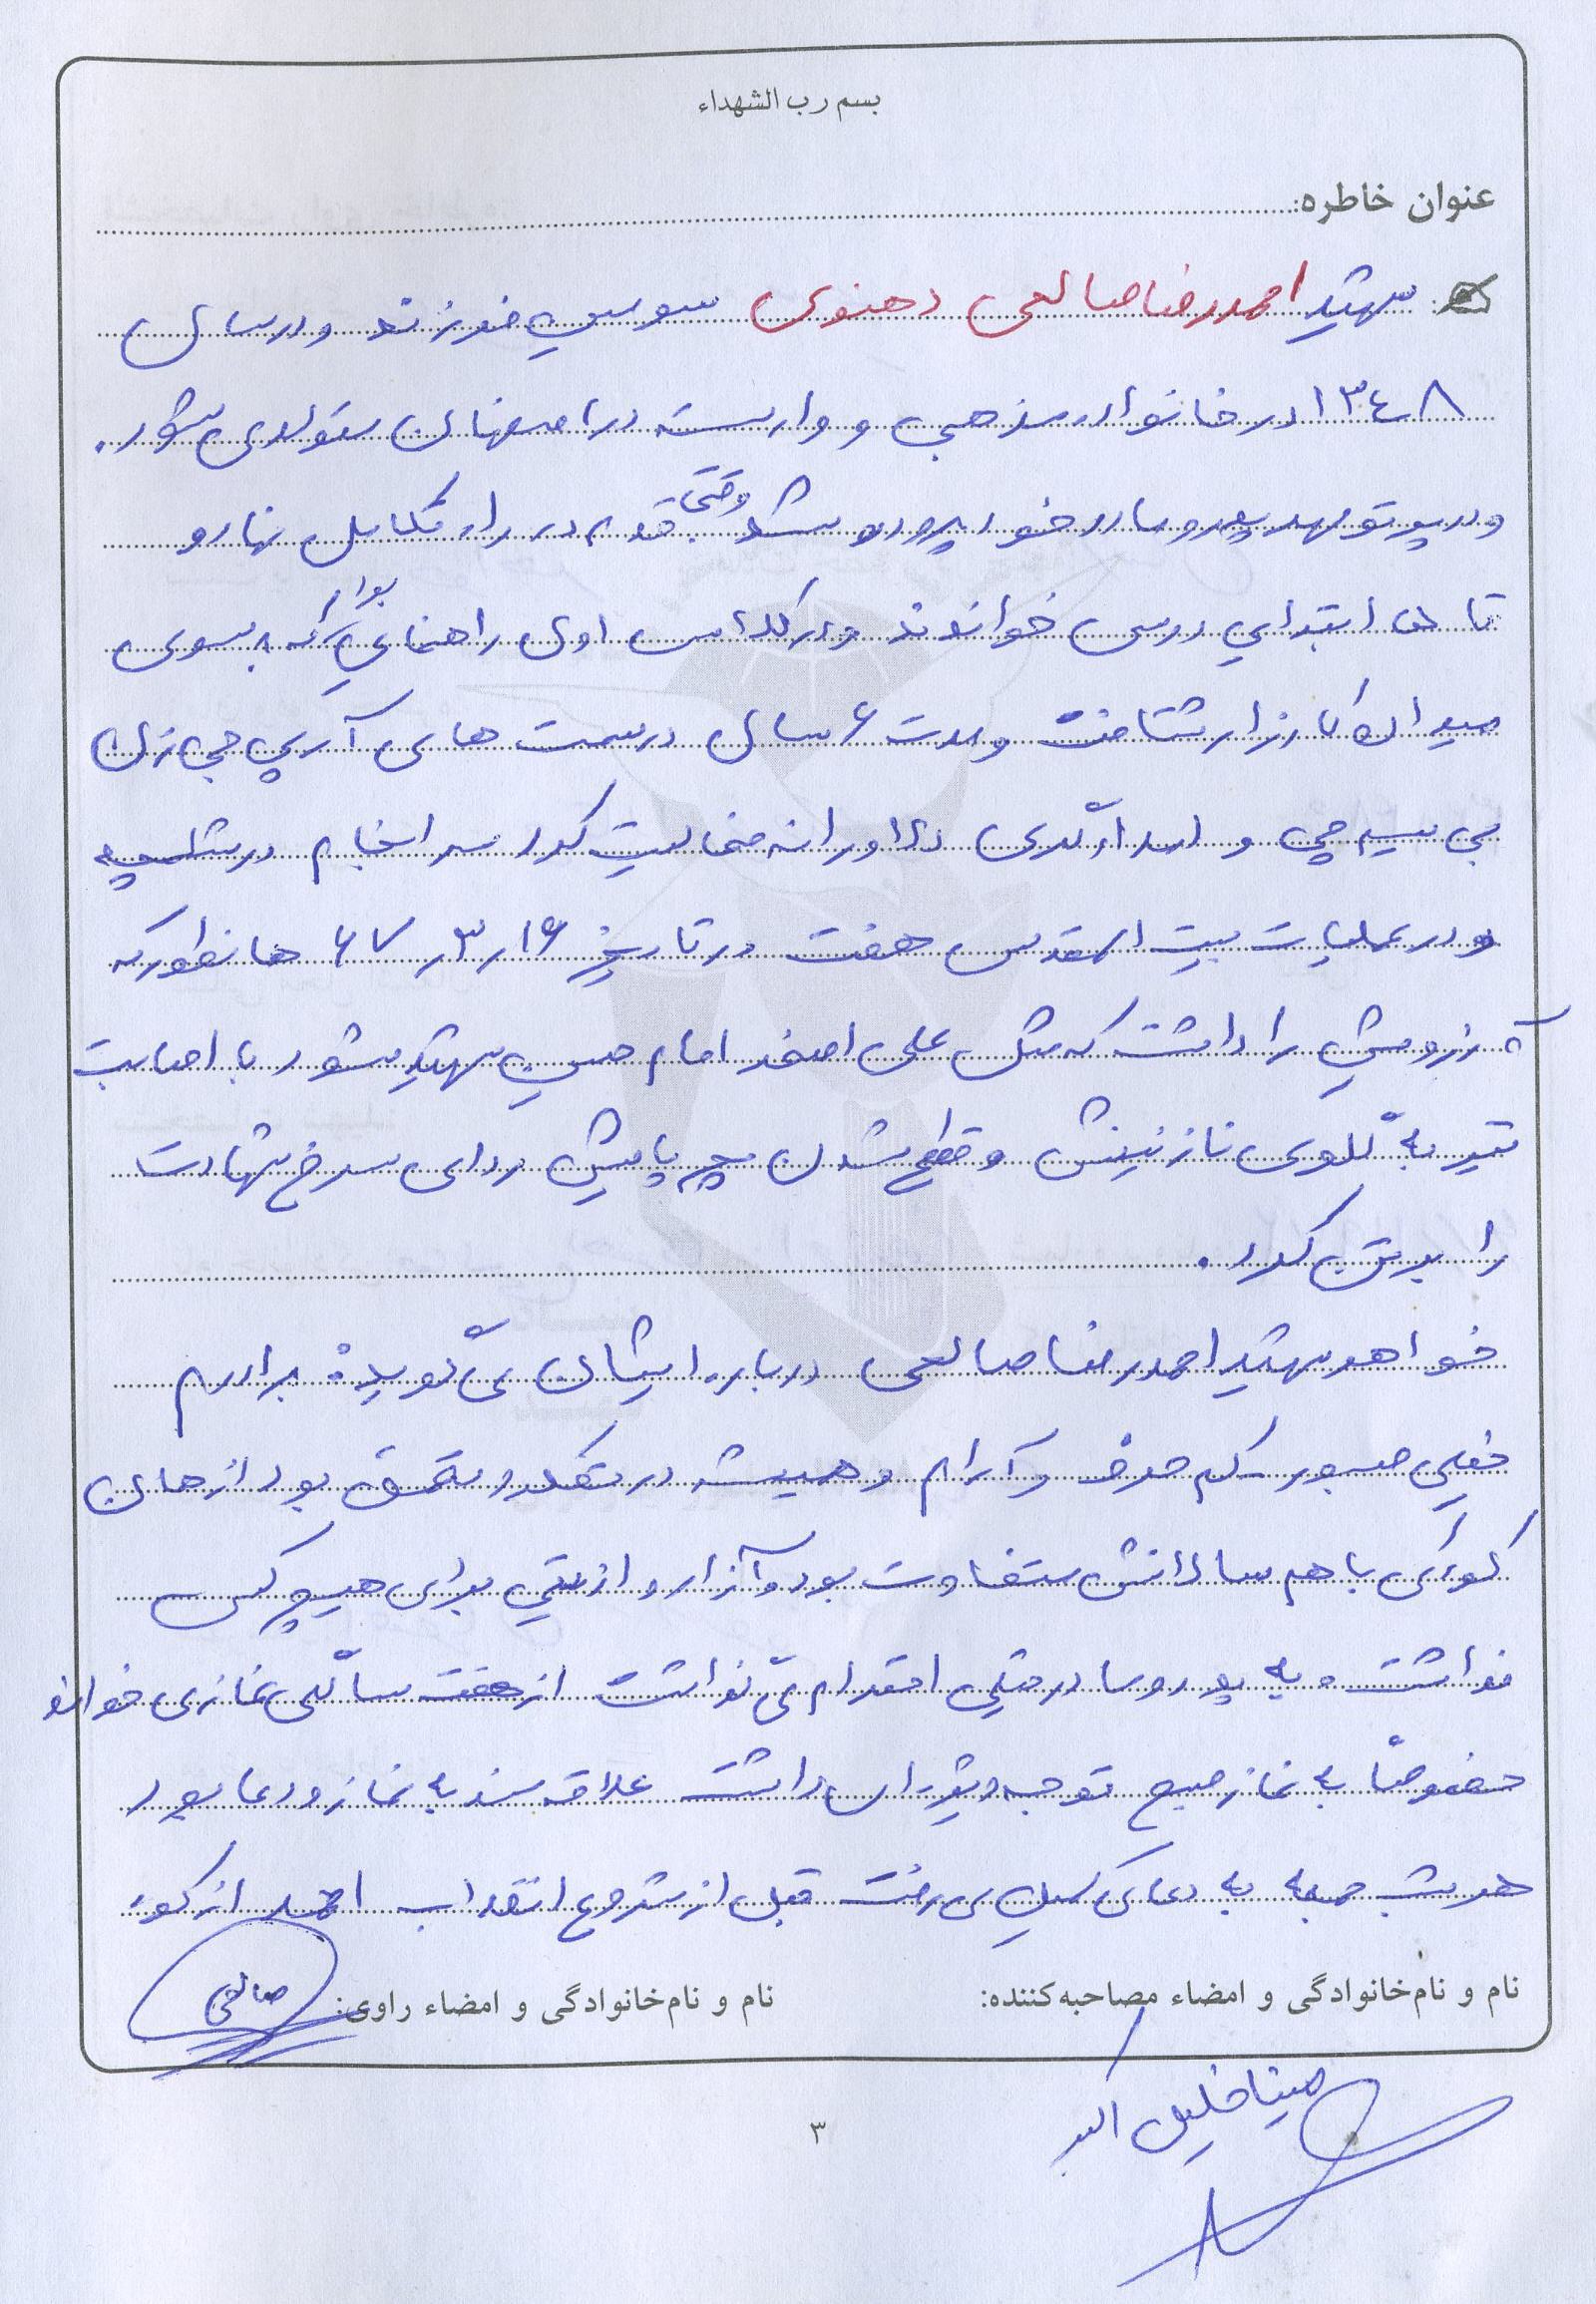 بسم رب الشهداء
عنوان خاطره:
شهید احمدرضا صالحی دهنوی سومین فرزند و در سال
۱۳۴۸ در خانواده مذهبی و وارسته در اصفهان متولد می شود.
و در پرتو مهر پدر و مادر خود پرورده شد وقتی قدم در راه تکامل نهاد و
تا ابتدایی درس خواندند و در کلاس اول راهنمایی بود که به سوی
میدان کارزار شتافت و مدت ۶ سال در سمت های آرپی جی زن
بی سیم چی و امدادگری دلاورانه فعالیت کرد سرانجام در شلمچه
و در عملیات بیت المقدس هفت در تاریخ ۱۶ر۳ر۶۷ همانطور که
آرزویش را داشت که مثل علی اصغر امام حسین شهید شود با اصابت
تیر به گلوی نازنینش و قطع شدن مچ پایش ردای سرخ شهادت
را برتن کرد.
خواهر شهید احمدرضا صالحی درباره ایشان می گوید: برادرم
خیلی صبور کم حرف و آرام و همیشه در تفکر و تعمق بود از همان
کودکی با هم سالانش متفاوت بود و آزار و اذیتی برای هیچ کس
نداشت و به پدر و مادر خیلی احترام می گذاشت از هفت سالگی نماز می خواند
خصوصاً به نماز صبح توجه ویژه ای داشت علاقه مند به نماز و دعا بود
هر شب جمعه به دعای کمیل می رفت قبل از شروع انقلاب احمد از کوره
نام و نام‌خانوادگی و امضاء مصاحبه‌کننده:
نام و نام‌خانوادگی و امضاء راوی: صالحی
مینا خلیل اکبر
۳